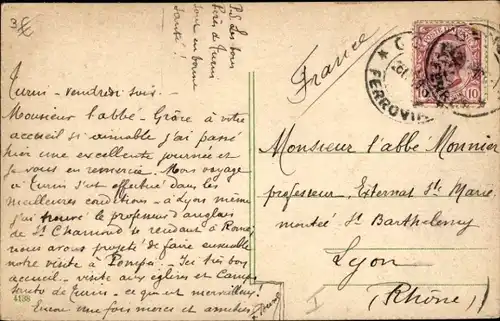 P.S. Les bons
Pères de Turin
sont en bonne
santé !
Turin - vendredi soir -
Monsieur l'abbé - Grâce à votre
accueil si aimable j'ai passé
hier une excellente journée et
je vous en remercie. Mon voyage
à Turin s'est effectué dans les
meilleures conditions - à Lyon même
j'ai trouvé le professeur d'anglais
de St Chamond se rendant à Rome
nous avons projeté de faire ensemble
notre visite à Pompei - Ici très bon
accueil - visite aux églises et Campo
Santo de Turin - ce qui est merveilleux
Encore une fois merci et amitiés
4138
France
FERROVIA
10
Monsieur l'abbé Monnier
professeur, Externat Ste Marie
montée St Barthelemy
Lyon
(Rhône)